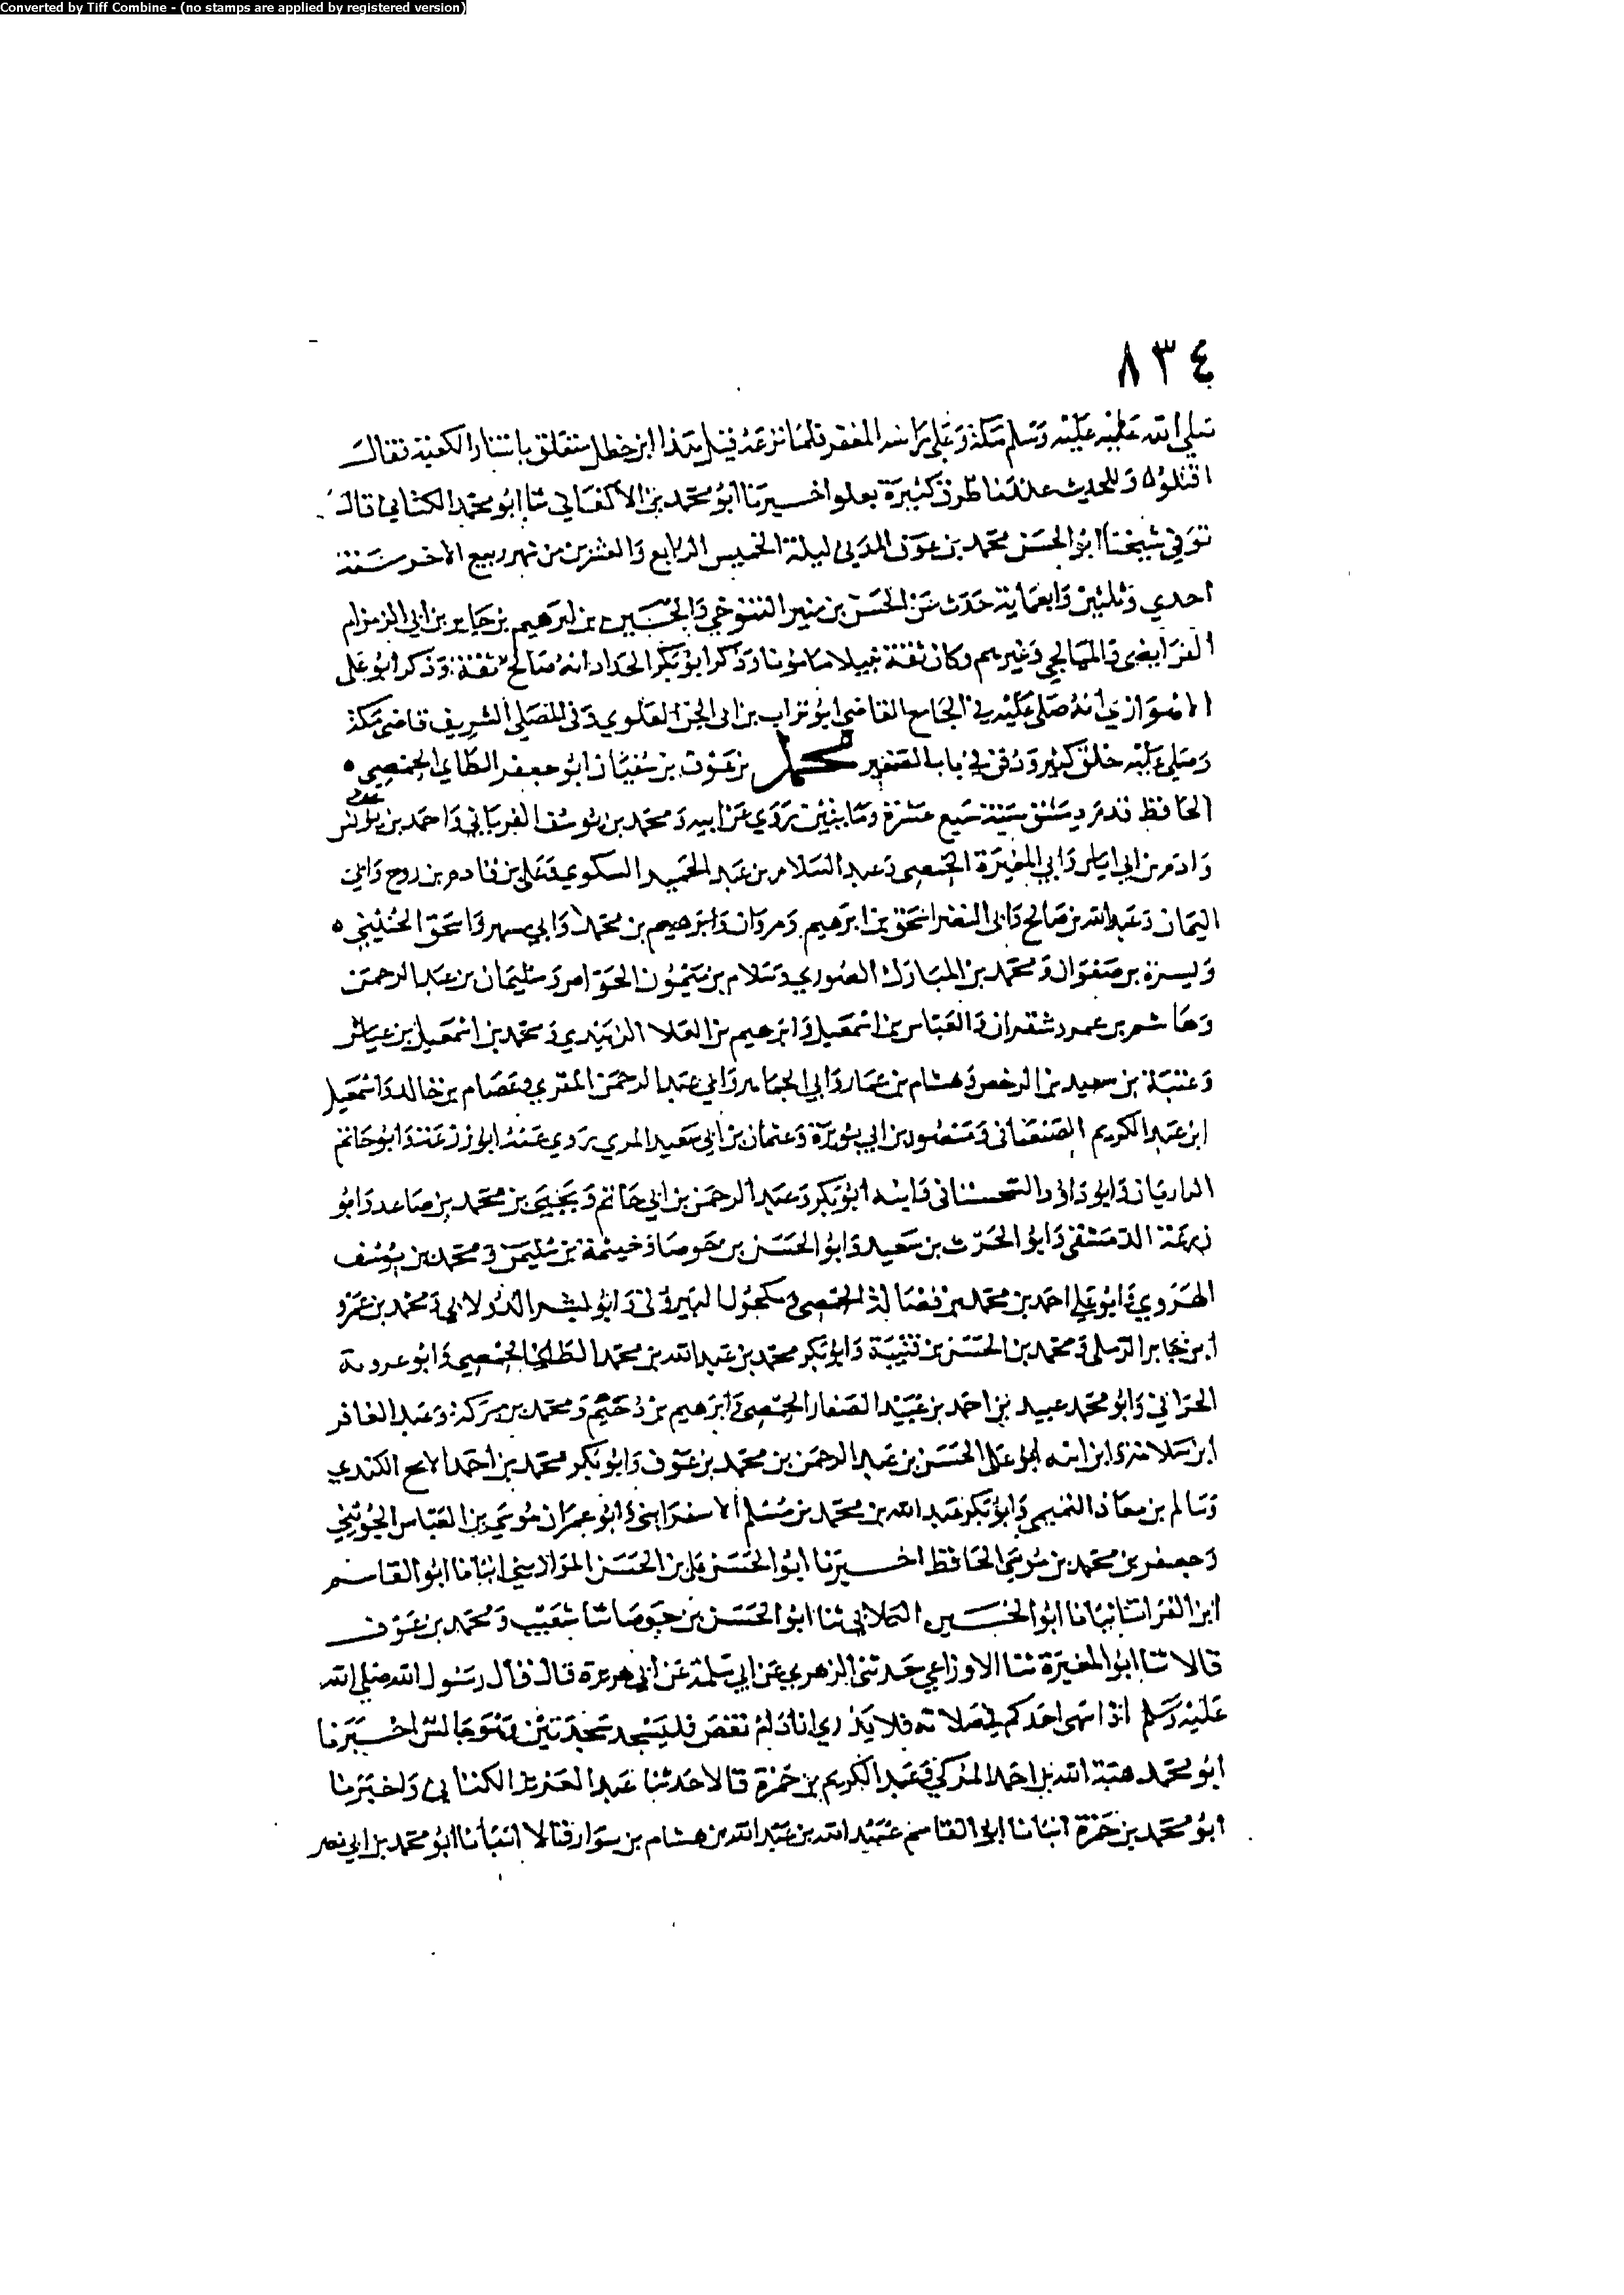 Converted by Tiff Combine - (no stamps are applied by registered version)
٨٣٤
صلى الله عليه وسلم مكة وعلى راسه المغفر فلما نزعه قيل هذا ابن خطل متعلق باستار الكعبة فقال
اقتلوه وللحديث عندنا طرق كثيرة بعلو اخبرنا ابو محمد بن الاكفاني ثنا ابو محمد الكتاني قال
توفي شيخنا ابو الحسن محمد بن عوف المزني ليلة الخميس الرابع والعشرين من شهر ربيع الاخر سنة
احدي وثلثين واربعماية حدث عن الحسن بن منير التنوخي والحسين بن ابرهيم بن جابر بن ابي الزمزام
الفرايضي والميانجي وغيرهم وكان ثقة نبيلا مامونا وذكر ابو بكر الحداد انه صالح ثقة وذكر ابو علي
الاهوازي انه صلى عليه في الجامع القاضي ابو تراب بن ابي الجن العلوي وفي المصلى الشريف قاضي مكة
وصلى عليه خلق كثير ودفن في باب الصغير محمد بن عوف بن سفيان ابو جعفر الطاي الحمصي
الحافظ قدم دمشق سنة سبع عشرة وماتين روي عن ابيه ومحمد بن يوسف الفريابي واحمد بن يونس
وادم بن ابي اياس وابي المغيرة الحمصي وعبد السلام بن عبد الحميد السكوي وعلي بن قادم بن روح وابي
اليمان وعبد الله بن صالح وابي النضر اسحق بن ابرهيم ومروان وابرهيم بن محمد وابي مسهر واسحق الحنيني
ويسرة بن صفوان ومحمد بن المبارك الصوري وسلام بن ميمون الخواص وسليمان بن عبد الرحمن
وهاشم بن عمرو شقران والعباس بن اسمعيل وابرهيم بن العلا الزبيدي ومحمد بن اسمعيل بن عياش
وعتبة بن سعيد بن الرخص وهشام بن عمار وابي الجماهر وابي عبد الرحمن المقري وعصام بن خالد واسمعيل
ابن عبد الكريم الصنعاني ومنصور بن ابي نويرة وعثمان بن ابي سعيد المري روي عنه ابو زرعة وابو حاتم
الرازيان وابو داود السجستاني وابنه ابو بكر وعبد الرحمن بن ابي حاتم ويحيى بن محمد بن صاعد وابو
زرعة الدمشقي وابو الحرث بن سعيد وابو الحسن بن جوصا وخيثمة بن سليمن ومحمد بن يوسف
الهروي وابو علي احمد بن محمد بن فضالة الحمصي ومكحول البيروتي وابو بشر الدولابي ومحمد بن عمرو
ابن جابر الرملي ومحمد بن الحسن بن قتيبة وابو بكر محمد بن عبد الله بن محمد الطائي الحمصي وابو عروبة
الحراني وابو محمد عبيد بن احمد بن عبيد الصفار الحمصي وابرهيم بن دحيم ومحمد بن بركة وعبد الغافر
ابن سلامة وابن ابنه ابو علي الحسن بن عبد الرحمن بن محمد بن عوف وابو بكر محمد بن احمد الكندي
وسالم بن معاذ التميمي وابو بكر عبد الله بن محمد بن مسلم الاسفرايني وابو عمران موسي بن العباس الجويني
وجعفر بن محمد بن موسي الحافظ اخبرنا ابو الحسن علي بن الحسن الموازيني انبانا ابو القاسم
ابن الفرات انبانا ابو الحسين الكلابي ثنا ابو الحسن بن جوصا ثنا شعيب ومحمد بن عوف
قالا ثنا ابو المغيرة ثنا الاوزاعي حدثني الزهري عن ابي سلمة عن ابي هريرة قال قال رسول الله صلى الله
عليه وسلم اذا سهى احدكم في صلاته فلا يدري ازاد ام نقص فليسجد سجدتين وهو جالس اخبرنا
ابو محمد هبة الله بن احمد المزكي وعبد الكريم بن حمزة قالا حدثنا عبد العزيز الكتاني واخبرنا
ابو محمد بن حمزة انبانا ابو القاسم عبيد الله بن عبد الله بن هشام بن سوار قالا انبانا ابو محمد بن ابي نصر